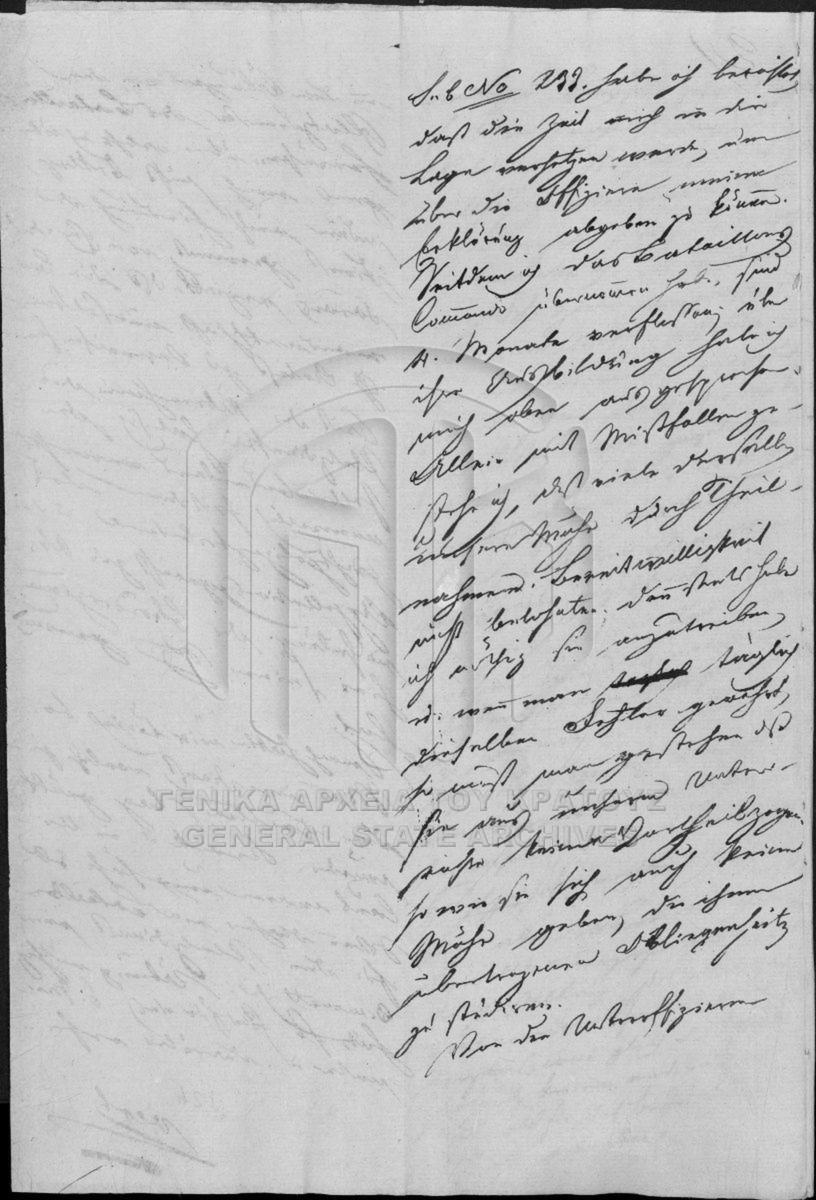 Sub No 233. habe ich berichtet,
daß die Zeit mich in die
Lage versetzen werde, um
über die Offiziere meine
Erklärung abgeben zu können.
Seitdem ich das Bataillons
Commando übernommen habe, sind
4. Monate verflossen; über
ihre Ausbildung habe ich
mich oben ausgesprochen.
Allein mit Mißfallen ge-
stehe ich, daß viele derselben
unsere Mühe durch Theil-
nahme u. Bereitwilligkeit
nicht belohnten. Denn stets habe
ich nöthig sie anzutreiben,
u. wenn man täglich
dieselben Fehler gewahrt,
so muß man gestehen daß
sie aus unserm Unter-
richte keinen Vortheil zogen,
so wie sie sich auch keine
Mühe geben, die ihnen
übertragenen Obliegenheit
zu studiren.
Von den Unteroffizieren
ΓΕΝΙΚΑ ΑΡΧΕΙΑ ΤΟΥ ΚΡΑΤΟΥΣ
GENERAL STATE ARCHIVES